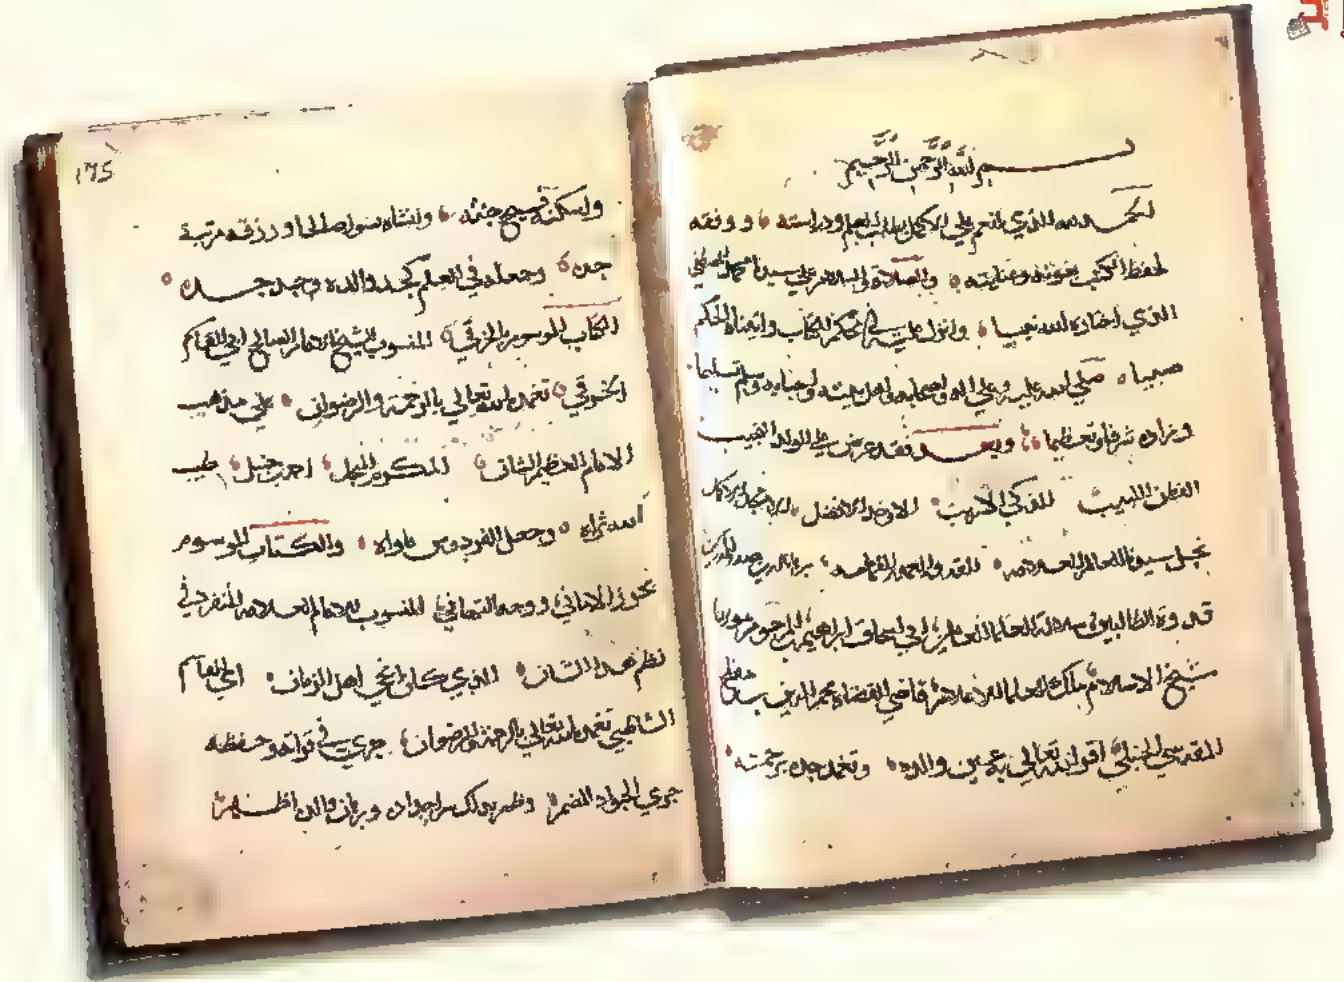 بسم الله الرحمن الرحيم
الحمد لله الذي انعم علي الاكمل بطلب العلم ودراسته ووفقه
لحفظ الكتب بعونه وعنايته والصلاة والسلام علي سيدنا محمد
الذي اختاره الله نجيبا وانزل عليه في محكم الكتاب واتيناه الحكم
صبيا صلي الله عليه وعلي اله واصحابه واهل بيته واحبابه وسلم تسليما
وزاده شرفا وتعظيما وبعد فقد عرض علي الولد النجيب
الفطن اللبيب الذكي الاريب الاوحد الافضل
نجل سيدنا العالم العلامه القدوة العمدة الفهامه برهان الدين صدر المدرسين
قدوة الطالبين سلالة العلما العاملين ابي اسحاق ابراهيم بن المرحوم مولانا
شيخ الاسلام ملك العلما الاعلام قاضي القضاه نجم الدين بن مفلح
المقدسي الحنبلي اقر الله تعالي به عين والده وتغمد جده برحمته
واسكنه فسيح جنته وانشاه نشوا صالحا ورزقه مرتبة
جده وجعله في العلم كجد والده وجد جده
الكتاب الموسوم بالخرقي المنسوب للشيخ الامام العالم ابي القاسم
الخرقي تغمده الله تعالي بالرحمة والرضوان علي مذهب
الامام العظيم الشان المشكور المبجل احمد بن حنبل طيب
الله ثراه وجعل الفردوس ماواه والكتاب الموسوم
بحرز الاماني ووجه التهاني المنسوب للامام العلامه المنفرد في
نظم هذا الشان الذي كان اعجي اهل الزمان ابي القاسم
الشاطبي تغمده الله تعالي بالرحمة والرضوان جري في قراته وحفظه
جري الجواد المضمر وظهر بذلك سر اجداده وبرهان والده اظهر